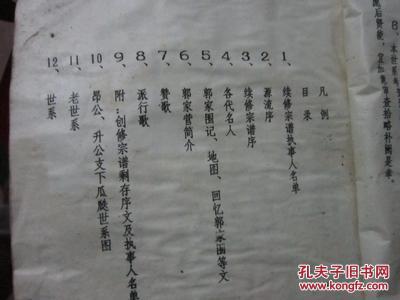 8、本世系
尾后资後，
查拾略补阙是幸。
凡例
目录
1、续修宗谱执事人名单
2、源流序
3、续修宗谱序
4、各代名人
5、郭家图记、地图、回忆郭家图等文
6、郭家营简介
7、赞歌
8、派行歌
9、附：创修宗谱剩存序文及执事人名单
10、昂公、升公支下瓜瓞世系图
11、老世系
12、世系
孔夫子旧书网